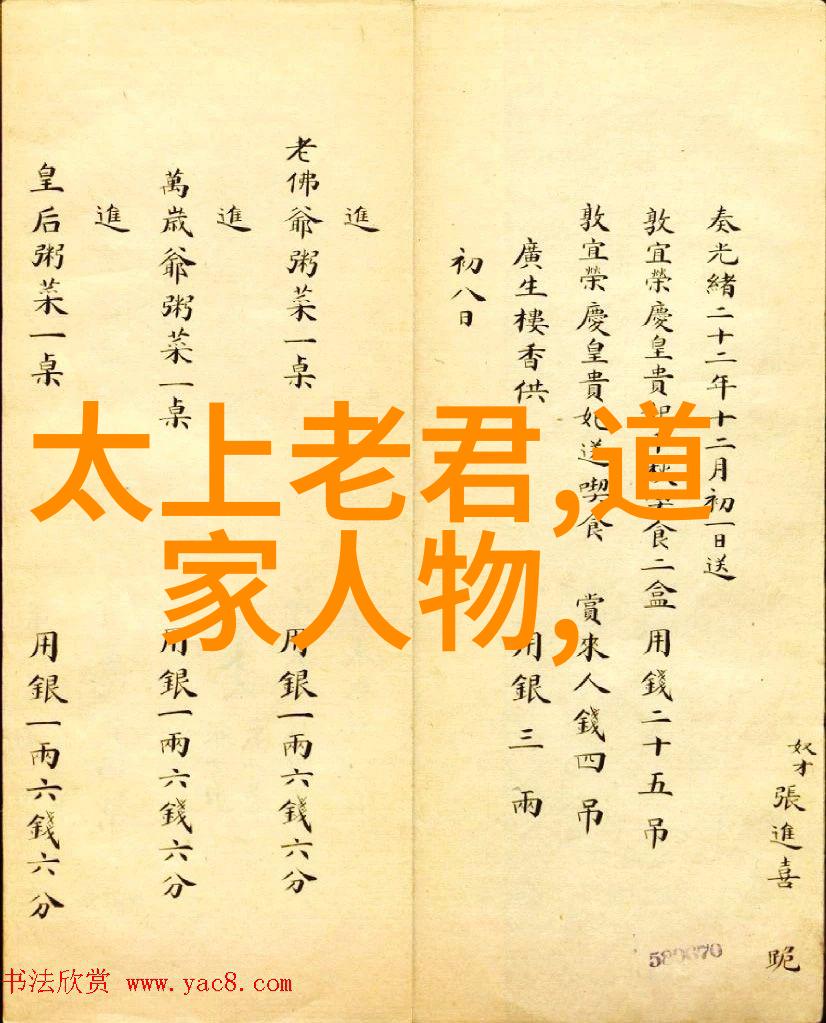 奴才張進喜 跪
奏光緒二十二年十二月初一日送
敦宜榮慶皇貴 食二盒 用錢二十五吊
敦宜榮慶皇貴妃送喫食 賞來人錢四吊
廣生樓香供 用銀三兩
初八日
進
老佛爺粥菜一桌 用銀一兩六錢六分
進
萬歲爺粥菜一桌 用銀一兩六錢六分
進
皇后粥菜一桌 用銀一兩六錢六分
太上老君,道
家人物,
书法欣赏 www.yac8.com